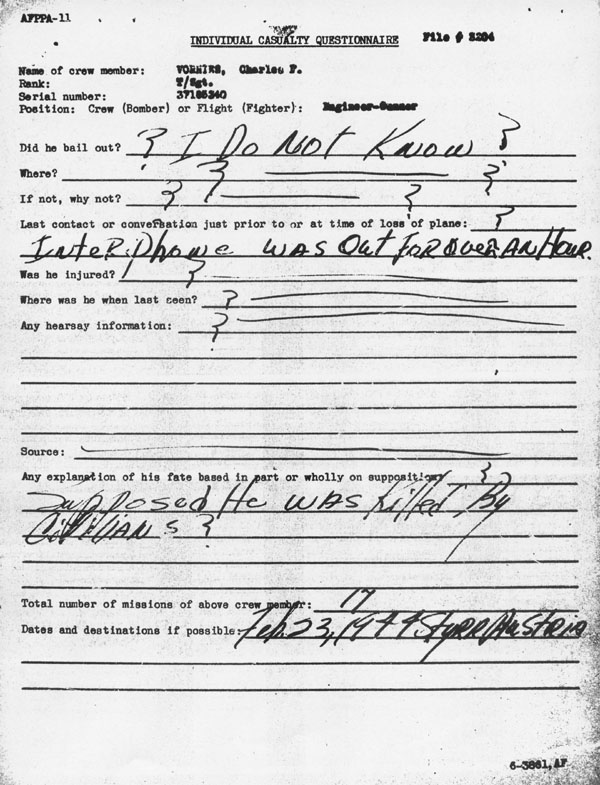 AFPPA-11
INDIVIDUAL CASUALTY QUESTIONNAIRE File #
Name of crew member: Charles F.
Rank: T/Sgt.
Serial number:
Position: Crew (Bomber) or Flight (Fighter): Engineer-Gunner
Did he bail out? I Do Not Know
Where?
If not, why not?
Last contact or conversation just prior to or at time of loss of plane:
Interphone was Out For over An Hour.
Was he injured?
Where was he when last seen?
Any hearsay information:
Source:
Any explanation of his fate based in part or wholly on supposition:
Supposed He was Killed By
Civilians
Total number of missions of above crew member: 17
Dates and destinations if possible: Feb. 23, 1944 Styrr Austria
6-3861,AF